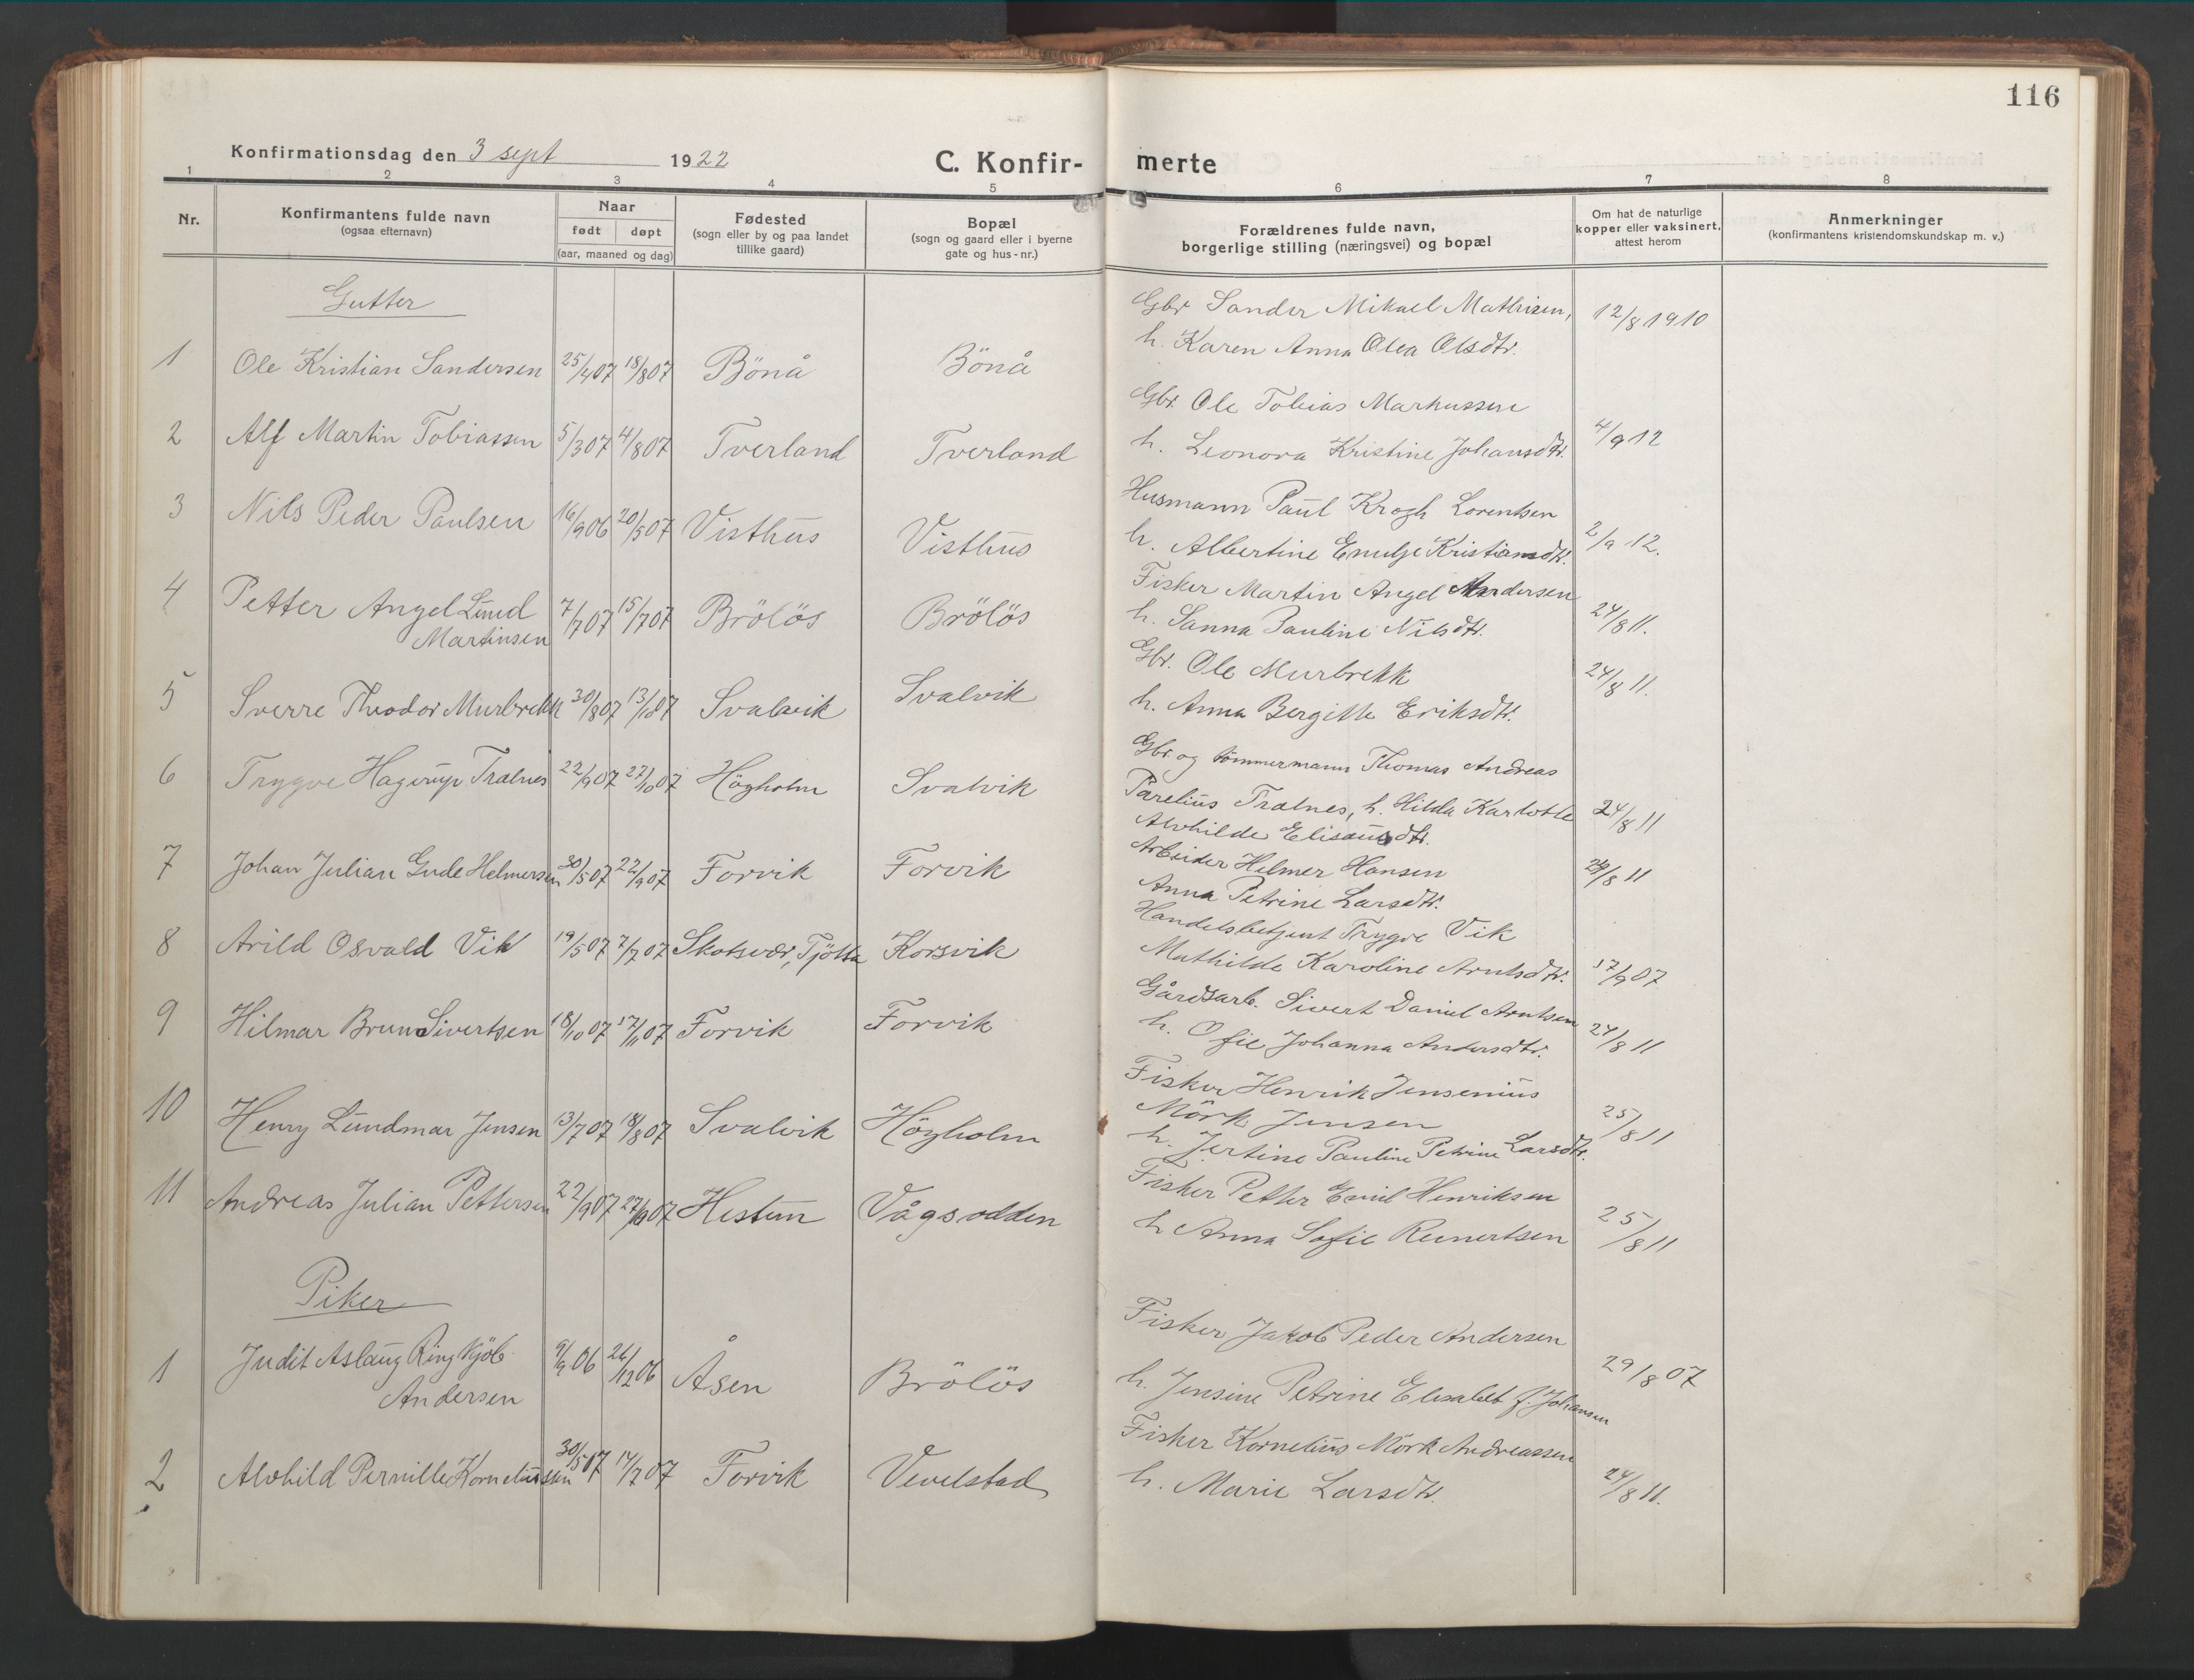 116
Konfirmationsdag den 3 sept 1922
C. Konfir-
merte
1 2 3 4 5 6 7 8
Nr.
Konfirmantens fulde navn
(ogsaa efternavn)
Naar
født døpt
(aar, maaned og dag)
Fødested
(sogn eller by og paa landet
tillike gaard)
Bopæl
(sogn og gaard eller i byerne
gate og hus-nr.)
Forældrenes fulde navn,
borgerlige stilling (næringsvei) og bopæl
Om hat de naturlige
kopper eller vaksinert,
attest herom
Anmerkninger
(konfirmantens kristendomskundskap m. v.)
Gutter
1 Ole Kristian Sandersen 25/4 07 18/8 07 Bönå Bönå
Gbr Sander Mikael Mathisen, 12/8 1910
h. Karen Anna Olea Olsdtr.
2 Alf Martin Tobiassen 5/3 07 4/8 07 Tverland Tverland
Gbr. Ole Tobias Markussen
h. Leonora Kristine Johansdtr. 4/9 12
3 Nils Peder Paulsen 16/9 06 20/5 07 Visthus Visthus
Husmann Paul Krogh Lorentsen
h. Albertine Emulje Kristiansdtr. 2/9 12.
4 Petter Angel Lund
Martinsen 7/7 07 15/7 07 Brölös Brölös
Fisker Martin Angel Andersen
h. Sanna Pauline Nilsdtr. 24/8 11.
5 Sverre Theodor Murbrekk 30/8 07 13/10 07 Svalvik Svalvik
Gbr. Ole Murbrekk 24/8 11.
h. Anna Bergitte Eriksdtr.
6 Trygve Hagerup Trælnes 22/9 07 27/10 07 Högholm Svalvik
Gbr og tömmermann Thomas Andreas
Parelius Trælnes, h. Hilda Karlotte 24/8 11
Alvhilde Elisæusdtr.
7 Johan Julian Gude Helmersen 30/5 07 22/9 07 Forvik Forvik
Arbeider Helmer Hansen 24/8 11
Anna Petrine Larsdtr.
8 Arild Osvald Vik 19/5 07 7/7 07 Skotsvær, Tjötta Korsvik
Handelsbetjent Trygve Vik
Mathilde Karoline Arntsdtr. 17/9 07
9 Hilmar Brun Sivertsen 18/10 07 17/11 07 Forvik Forvik
Gårdsarb. Sivert Daniel Arntsen
h. Ofie Johanna Andersdtr. 24/8 11
10 Henry Lundmar Jensen 13/7 07 18/8 07 Svalvik Högholm
Fisker Henrik Jensenius
Mörk Jensen 25/8 11
h. Jertine Pauline Petrine Larsdtr.
11 Andreas Julian Pettersen 22/9 07 27/10 07 Hestun Vågsodden
Fisker Petter Emil Henriksen
h Anna Sofie Reinertsen 25/8 11
Piker
1 Judit Aslaug Ringkjöb
Andersen 9/9 06 26/12 06 Åsen Brölös
Fisker Jakob Peder Andersen
h. Jensine Petrine Elisabet f. Johansen 29/8 07
2 Alvhild Pernille Korneliussen 30/5 07 14/7 07 Forvik Vevelstad
Fisker Kornelius Mörk Andreassen
h. Marie Larsdtr. 24/8 11.